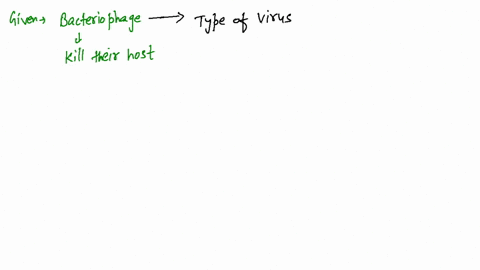 Given→ Bacteriophage → Type of virus
↓
kill their host